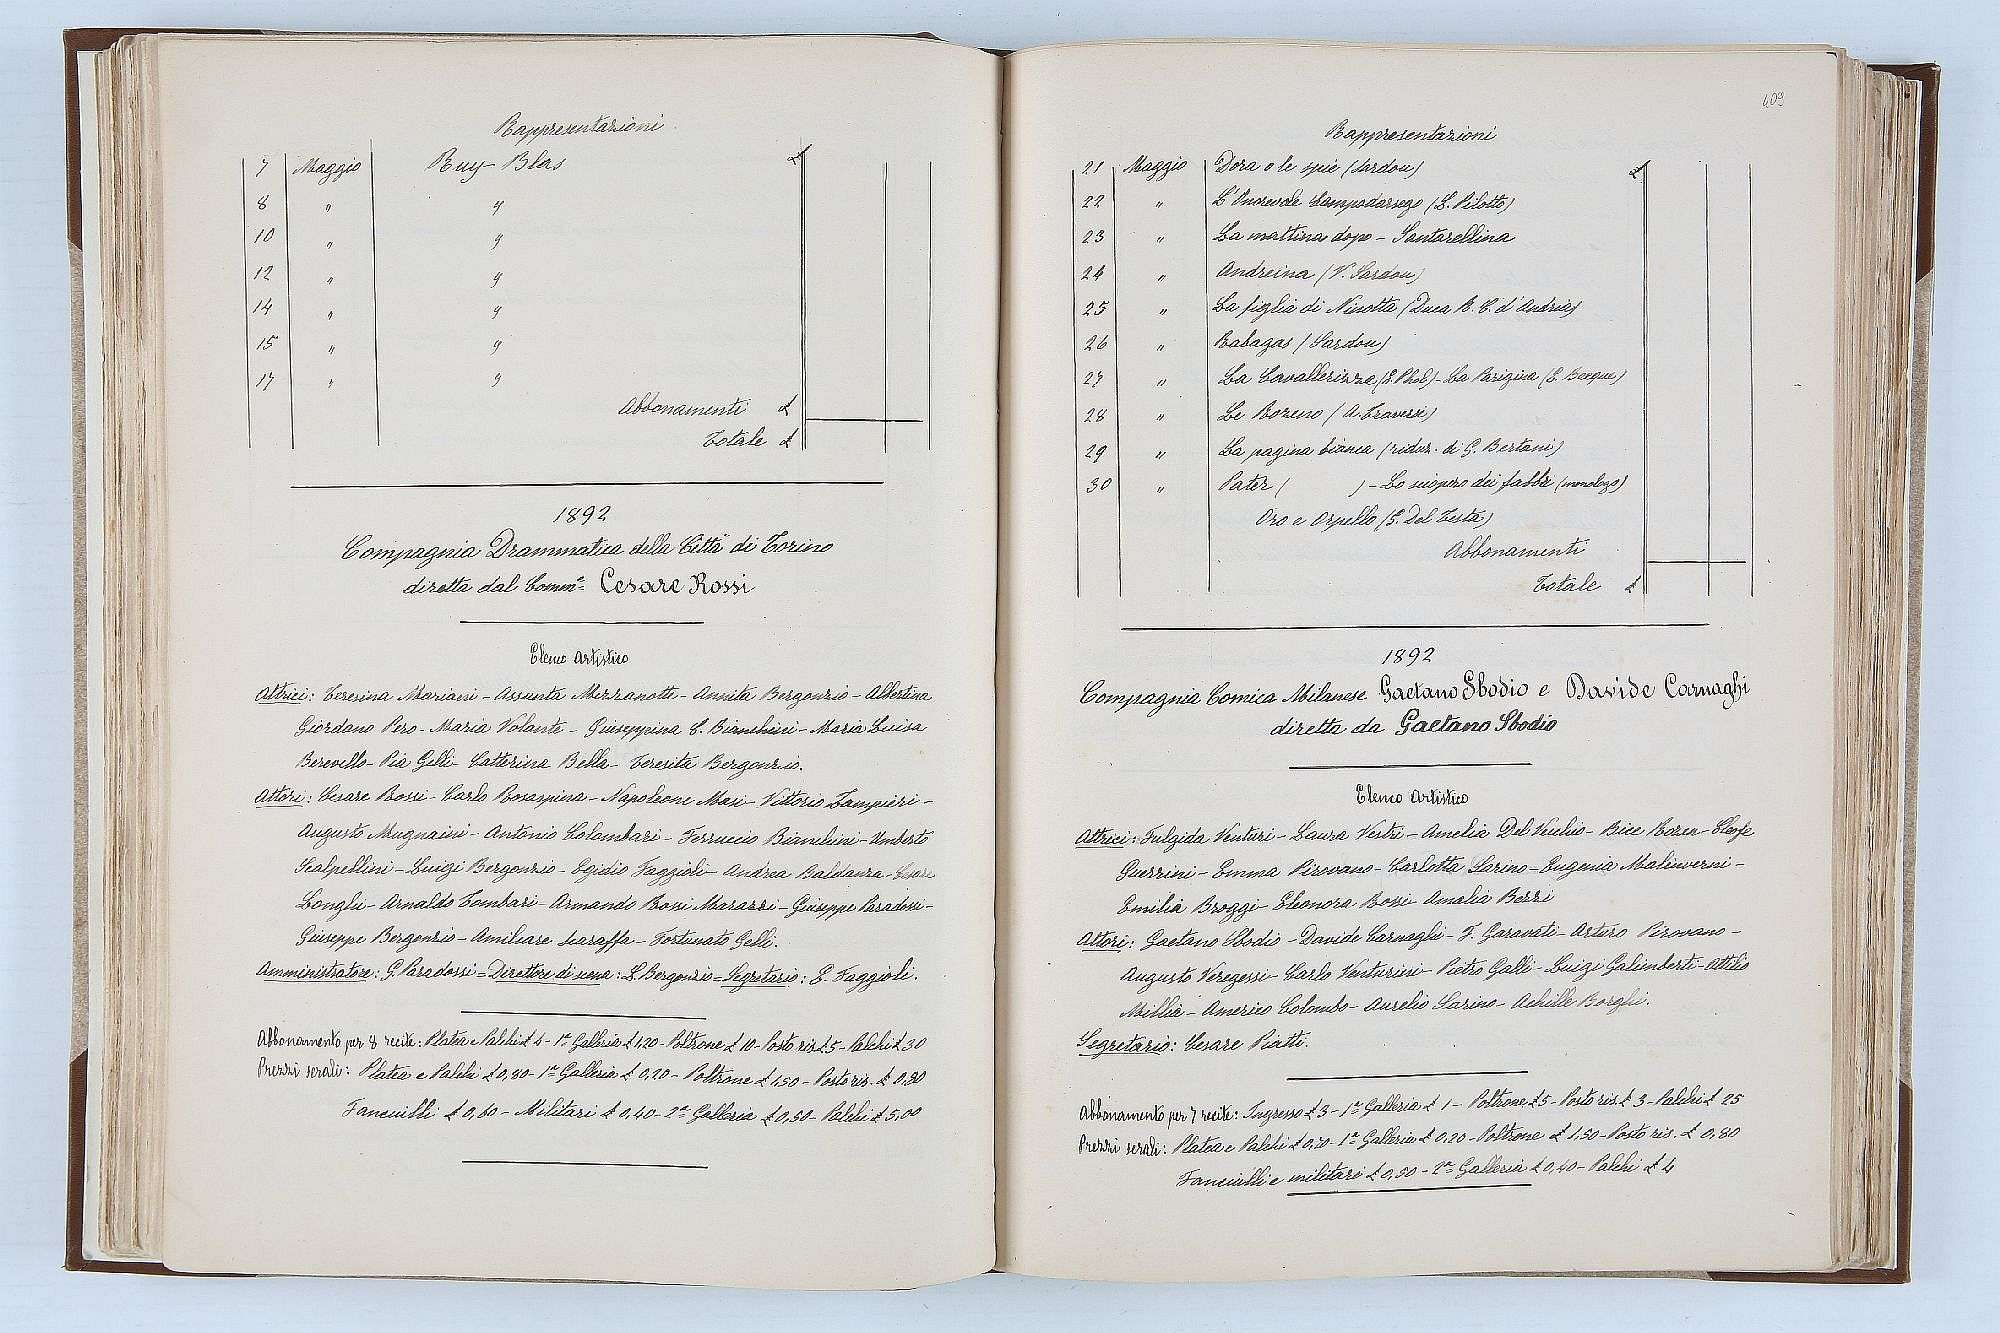 Rappresentazioni
7 Maggio Ruy Blas £
8 " "
10 " "
12 " "
14 " "
15 " "
17 " "
Abbonamenti £
Totale £
1892
Compagnia Drammatica della Città di Torino
diretta dal Comm.e Cesare Rossi
Elenco Artistico
Attrici: Teresina Mariani - Assunta Mezzanotte - Annita Bergonzio - Albertina
Giordano Pero - Maria Volante - Giuseppina C. Bianchini - Maria Luisa
Berevello - Pia Gelli - Catterina Bella - Teresita Bergonzio.
Attori: Cesare Rossi - Carlo Rosaspina - Napoleone Masi - Vittorio Zampieri -
Augusto Mugnaini - Antonio Colombari - Ferruccio Bianchini - Umberto
Scalpellini - Luigi Bergonzio - Egidio Faggioli - Andrea Baldanza - Cesare
Longhi - Arnaldo Tombari - Armando Rossi Marazzi - Giuseppe Paradossi -
Giuseppe Bergonzio - Amilcare Scaraffa - Fortunato Gelli.
Amministratore: G. Paradossi = Direttore di scena: L. Bergonzio = Segretario: E. Faggioli.
Abbonamento per 8 recite: Platea e Palchi £ 4 - 1ª Galleria £ 1,20 - Poltrone £ 10 - Posto ris. £ 5 - Palchi £ 30
Prezzi serali: Platea e Palchi £ 0,80 - 1ª Galleria £ 0,20 - Poltrone £ 1,50 - Posto ris. £ 0,80
Fanciulli £ 0,60 - Militari £ 0,40 - 2ª Galleria £ 0,50 - Palchi £ 5,00
409
Rappresentazioni
21 Maggio Dora o le spie (Sardou) £
22 " L'Onorevole Campodarsego (L. Pilotto)
23 " La mattina dopo - Santarellina
24 " Andreina (V. Sardou)
25 " La figlia di Ninotta (Duca R. C. d'Andria)
26 " Rabagas (Sardou)
27 " La Cavallerizza (E. Phol) - La Parigina (E. Becque)
28 " Le Rozeno (A. Traversi)
29 " La pagina bianca (riduz. di G. Bertani)
30 " Pater ( ) - Lo sciopero dei fabbri (monologo)
Oro e Orpello (G. Del Testa)
Abbonamenti
Totale £
1892
Compagnia Comica Milanese Gaetano Sbodio e Davide Carnaghi
diretta da Gaetano Sbodio
Elenco Artistico
Attrici: Fulgida Venturi - Laura Vestri - Amelia Del Vecchio - Bice Rozen - Cleofe
Guerrini - Emma Pirovano - Carlotta Sarino - Eugenia Malinverni -
Emilia Broggi - Eleonora Rossi - Amalia Bezzi
Attori: Gaetano Sbodio - Davide Carnaghi - F. Garavati - Arturo Pirovano -
Augusto Veregessi - Carlo Venturini - Pietro Galli - Luigi Galimberti - Attilio
Millia - Americo Colombo - Aurelio Sarino - Achille Borghi.
Segretario: Cesare Piatti.
Abbonamento per 7 recite: Ingresso £ 3 - 1ª Galleria £ 1 - Poltrone £ 5 - Posto ris. £ 3 - Palchi £ 25
Prezzi serali: Platea e Palchi £ 0,70 - 1ª Galleria £ 0,20 - Poltrone £ 1,50 - Posto ris. £ 0,80
Fanciulli e militari £ 0,50 - 2ª Galleria £ 0,40 - Palchi £ 4